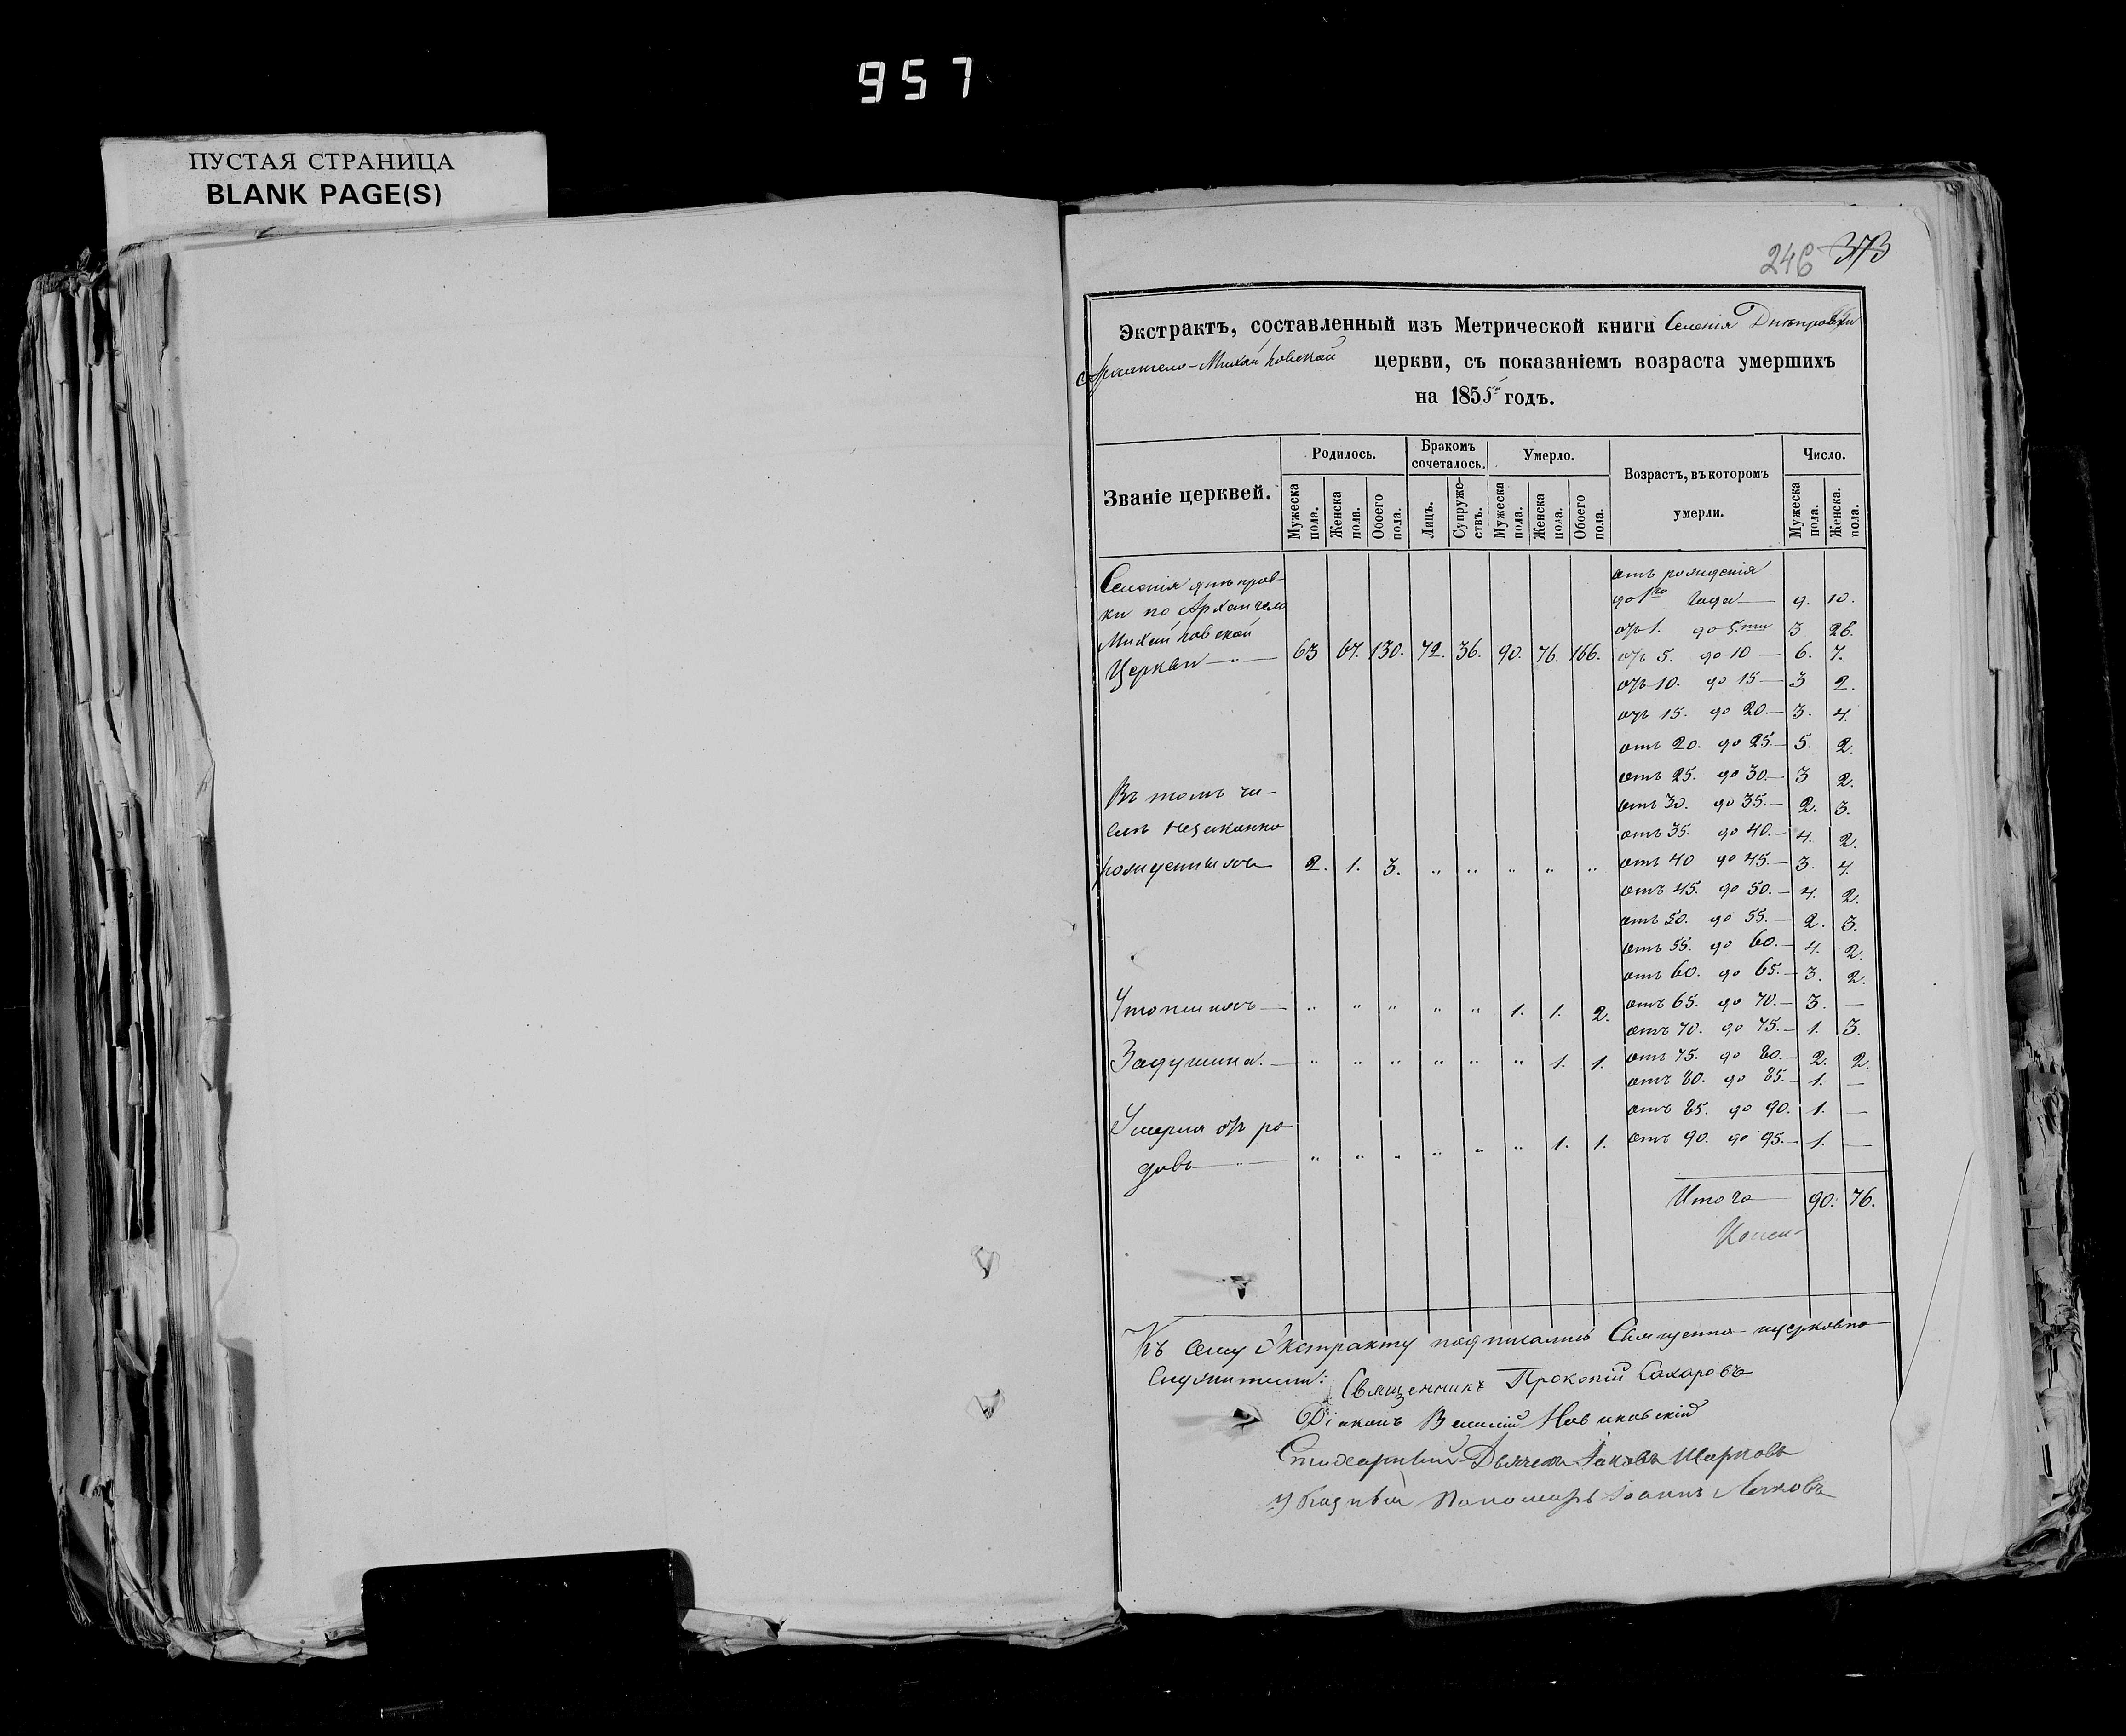 957
ПУСТАЯ СТРАНИЦА
BLANK PAGE(S)
246 373
Экстрактъ, составленный изъ Метрической книги Селенія Днѣпровки
Архангело-Михайловской церкви, съ показаніемъ возраста умершихъ
на 1855й годъ.
Званіе церквей. Родилось. Бракомъ сочеталось. Умерло. Возрастъ, въ которомъ умерли. Число.
Мужеска пола. Женска пола. Обоего пола. Лицъ. Супружествъ. Мужеска пола. Женска пола. Обоего пола. Мужеска пола. Женска. пола.
Селенія Днѣпров-
ки по Архангело
Михайловской
Церкви 63 67. 130. 72. 36. 90. 76. 166.
отъ рожденія
до 1го года — 9. 10.
отъ 1. до 5.ти 3 26.
отъ 5. до 10 — 6. 7.
отъ 10. до 15 — 3 2.
отъ 15. до 20. — 3. 4.
отъ 20. до 25. — 5. 2.
отъ 25. до 30. — 3 2.
отъ 30. до 35. — 2. 3.
отъ 35. до 40. — 4. 2.
отъ 40 до 45. — 3. 4.
отъ 45. до 50. — 4. 2.
отъ 50. до 55. — 2. 3.
отъ 55. до 60. — 4. 2.
отъ 60. до 65. — 3. 2.
отъ 65. до 70. — 3. —
отъ 70. до 75. — 1. 3.
отъ 75. до 80. — 2. 2.
отъ 80. до 85. — 1. —
отъ 85. до 90. 1. —
отъ 90. до 95. — 1. —
Итого 90. 76.
Въ томъ чи-
слѣ незаконно
рожденныхъ 2. 1. 3. „ „ „ „ „
Утопшихъ — „ „ „ „ „ 1. 1. 2.
Задушена. — „ „ „ „ „ „ 1. 1.
Умерла отъ ро-
довъ „ „ „ „ „ „ 1. 1.
Къ сему Экстракту подписались Священно-церковно-
служители: Священникъ Прокопій Сахаровъ
Діаконъ Василій Новаковскій
Стихарный Дьячекъ Іаковъ Шарковъ
Указный Пономарь Іоаннъ